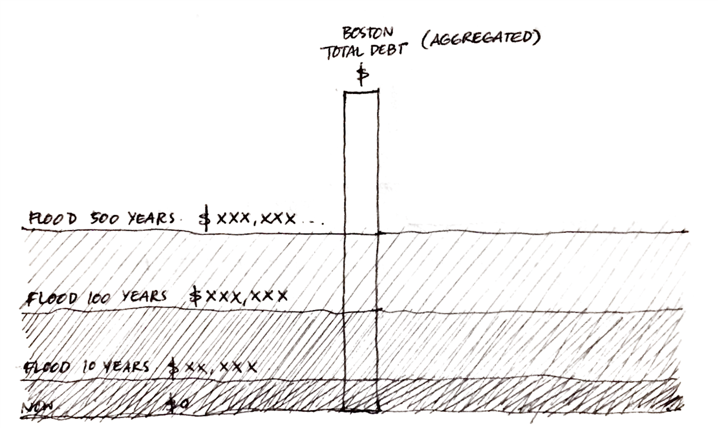 BOSTON
TOTAL DEBT (AGGREGATED)
$
FLOOD 500 YEARS. $ XXX,XXX...
FLOOD 100 YEARS $XXX,XXX
FLOOD 10 YEARS $XX,XXX
NOW $0